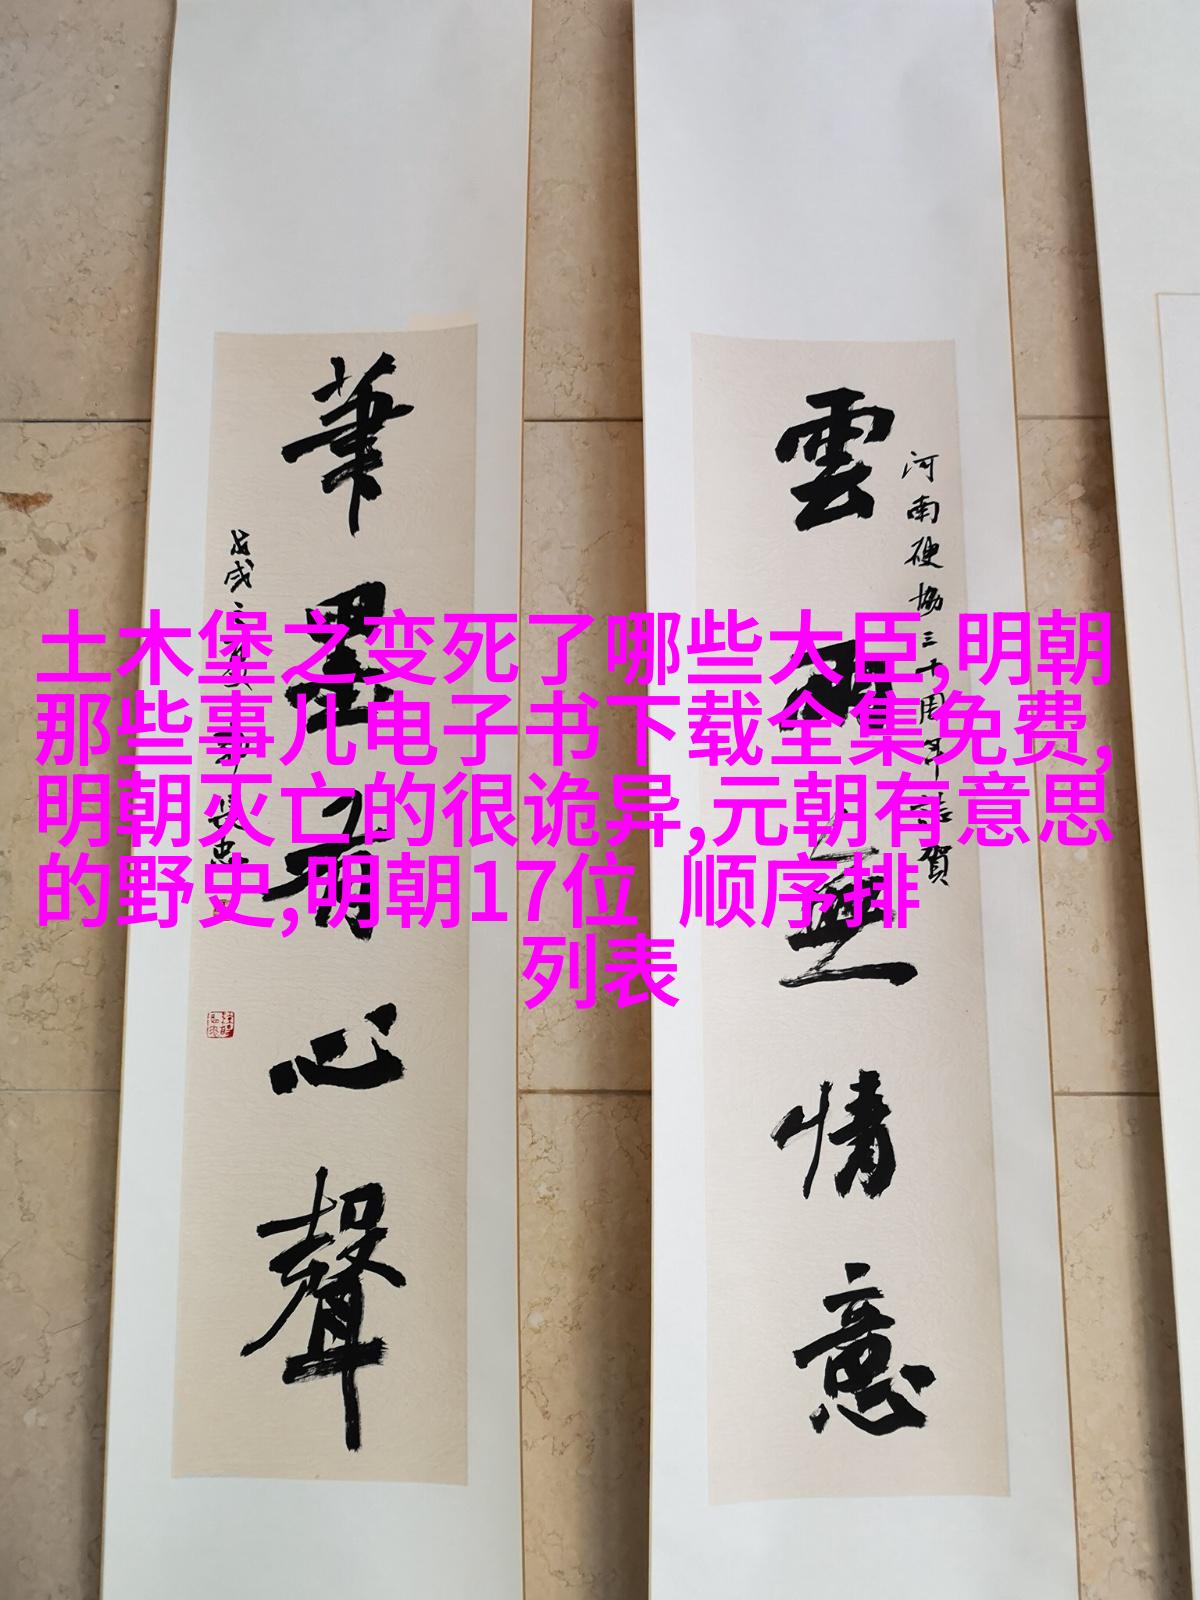 土木堡之变死了哪些大臣,明朝
那些事儿电子书下载全集免费,
明朝灭亡的很诡异,元朝有意思
的野史,明朝17位 顺序排
列表
河南硬協三十周年誌賀
雲
無
情意
筆墨有心聲
戊戌